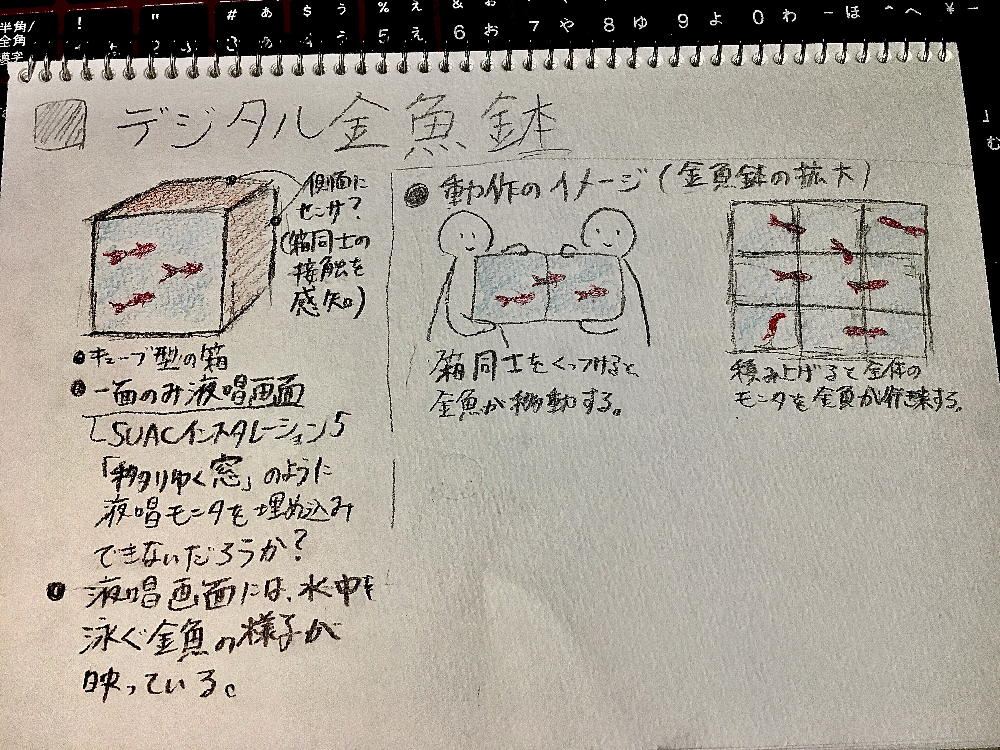 半角/
全角
漢字
! " # あ $ う % え & お
や ゆ よ わ ー ほ ^ へ ¥ ー
5 え 6 お 7 や 8 ゆ 9 よ 0 わ
む
デジタル金魚鉢
側面に
センサ?
(箱同士の
接触を
感知)
●キューブ型の箱
●一面のみ液唱画面
SUACインスタレーション5
「移りゆく窓」のように
液唱モニタを埋め込み
できないだろうか?
●液唱画面には、水中を
泳ぐ金魚の様子が
映っている。
●動作のイメージ(金魚鉢の拡大)
箱同士をくっつけると
金魚が移動する。
積み上げると全体の
モニタを金魚が行き来する。